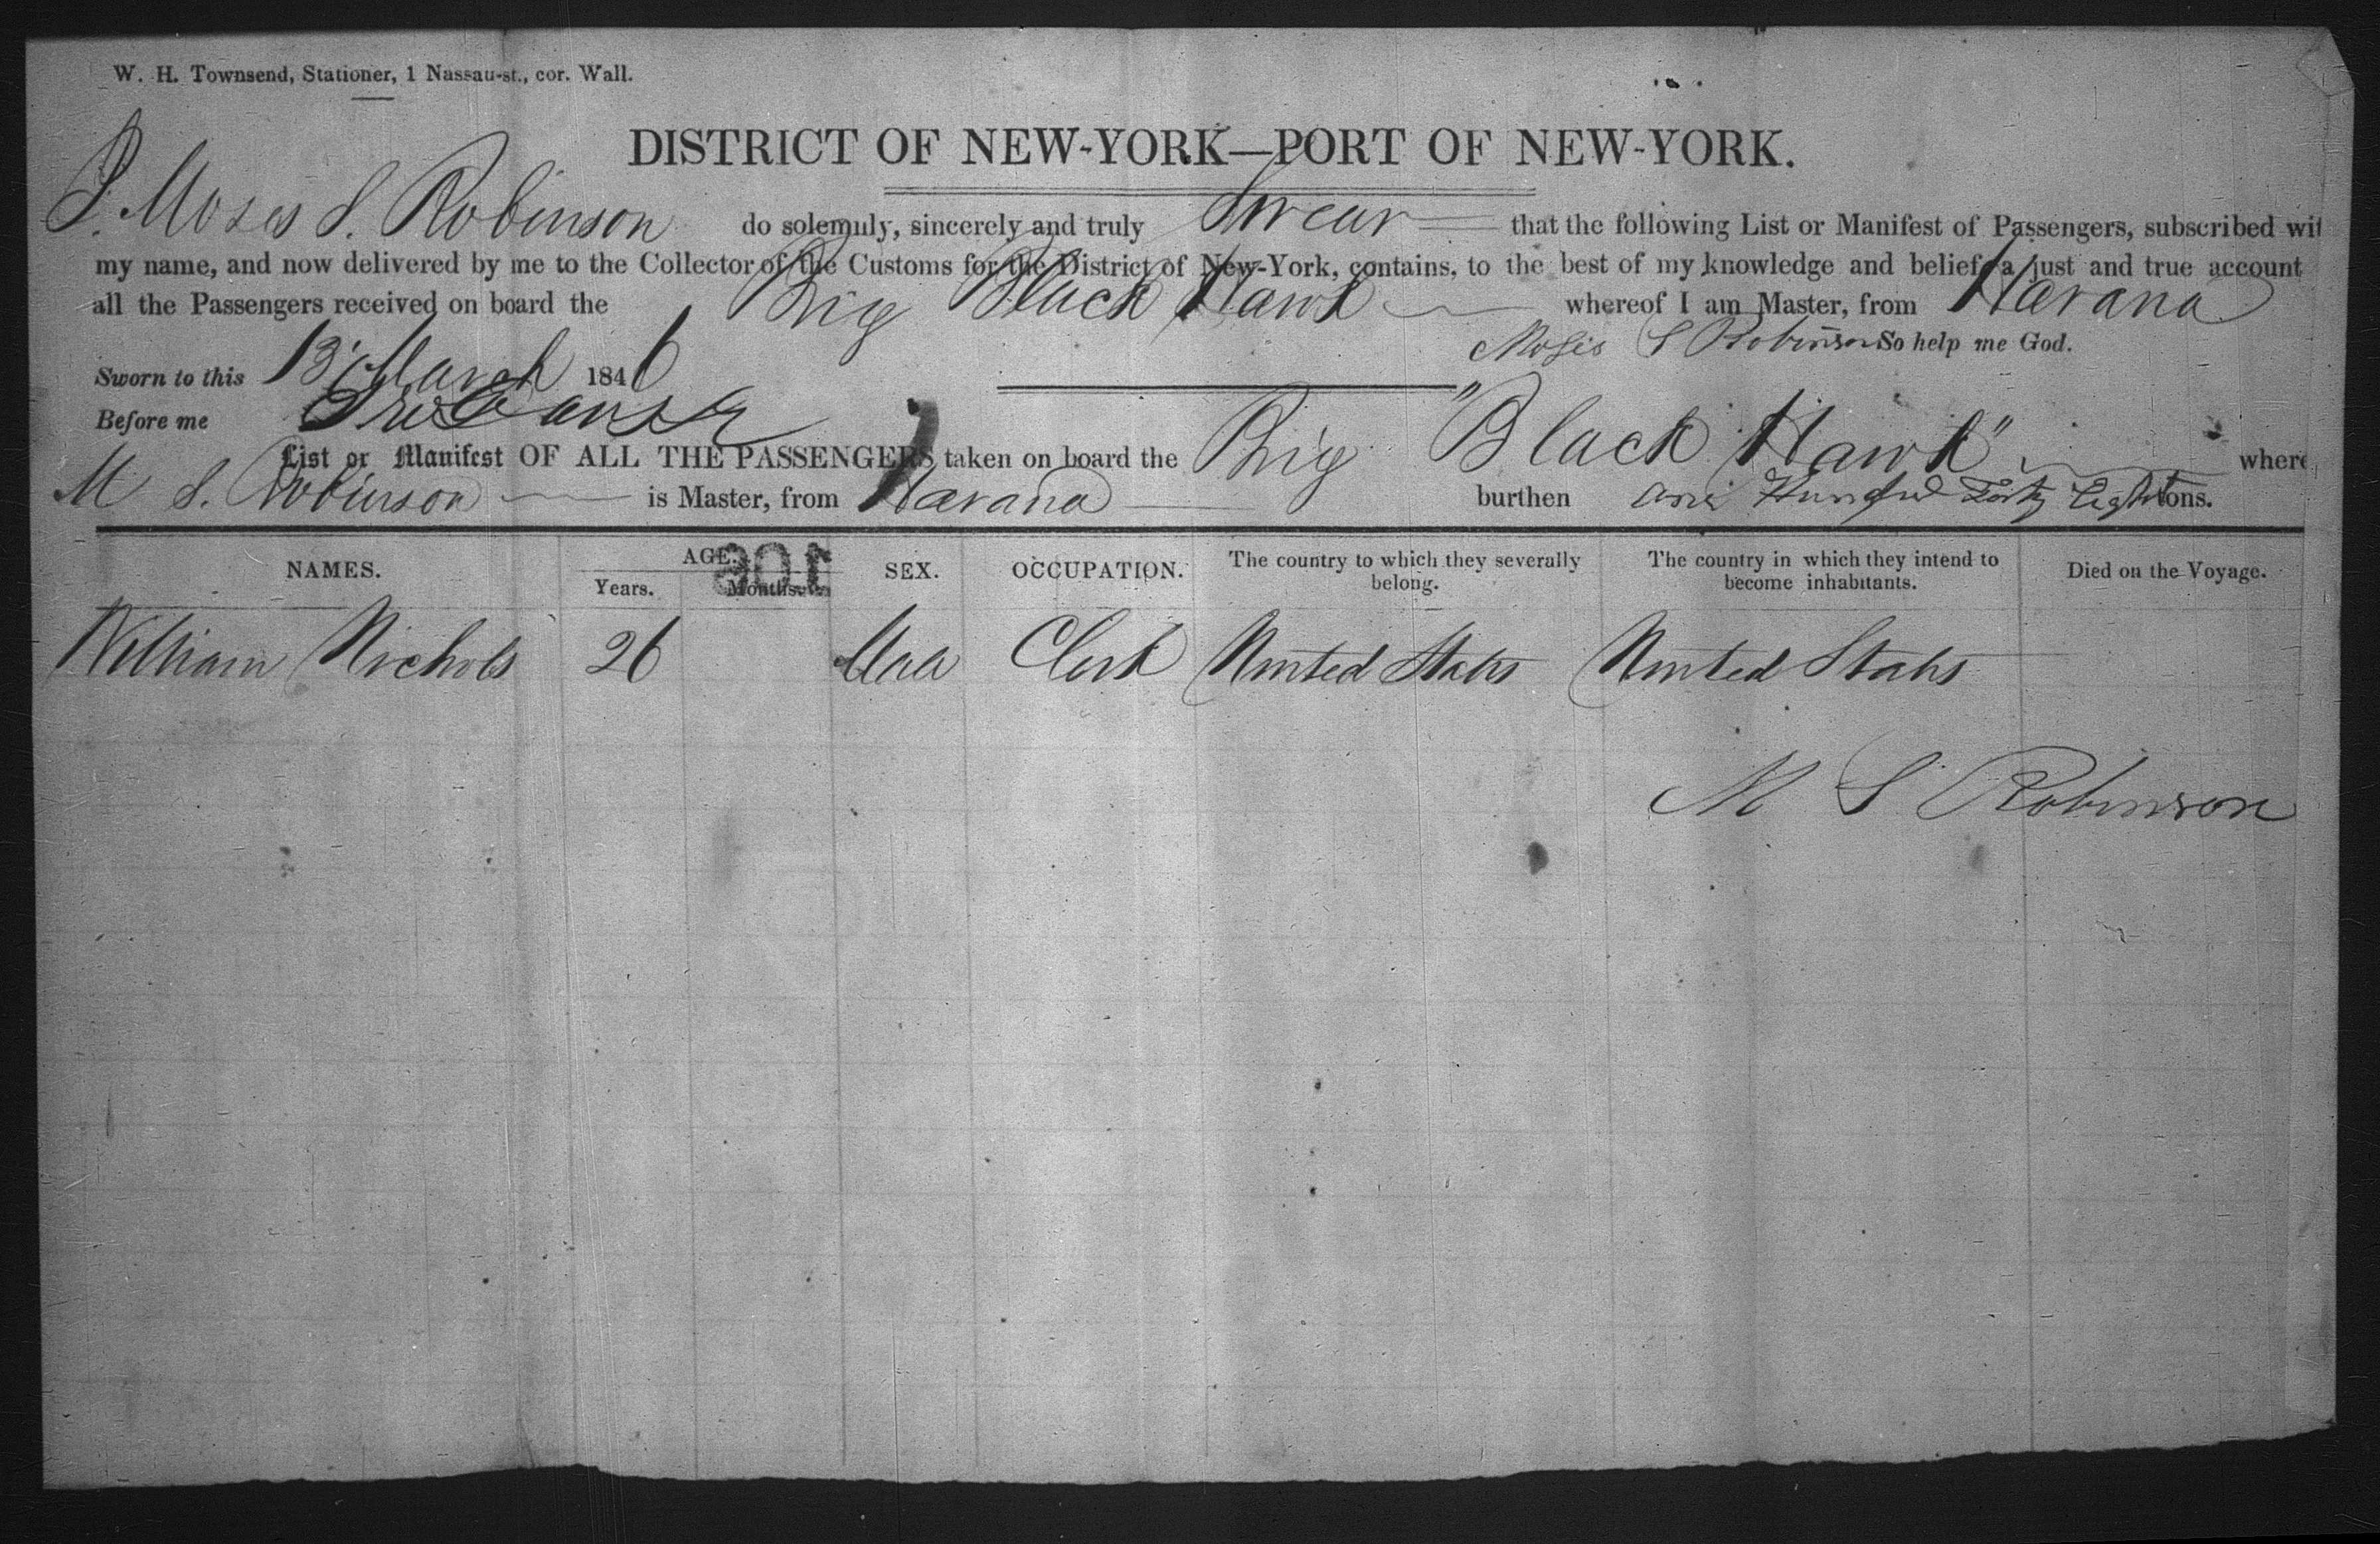 W. H. Townsend, Stationer, 1 Nassau-st., cor. Wall.
DISTRICT OF NEW-YORK—PORT OF NEW-YORK.
I. Moses S. Robinson do solemnly, sincerely and truly Swear that the following List or Manifest of Passengers, subscribed wit
my name, and now delivered by me to the Collector of the Customs for the District of New-York, contains, to the best of my knowledge and belief, a just and true account
all the Passengers received on board the Brig Black Hawk whereof I am Master, from Havana
Moses S Robinson So help me God.
Sworn to this 13 March 1846
Before me
List or Manifest OF ALL THE PASSENGERS taken on board the Brig "Black Hawk" where
M S. Robinson is Master, from Havana burthen One Hundred Forty Eight tons.
NAMES. AGE. SEX. OCCUPATION. The country to which they severally belong. The country in which they intend to become inhabitants. Died on the Voyage.
Years. Months. 106
William Nichols 26 Male Clerk United States United States
M S Robinson